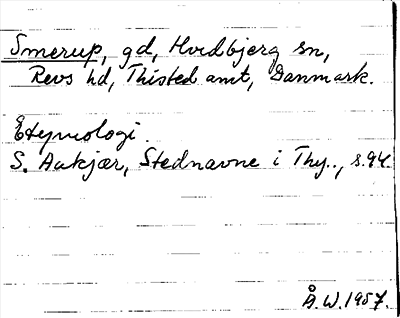 Smerup, gd, Hvidbjerg sn,
Revs hd, Thisted amt, Danmark.
Etymologi
S. Aakjær, Stednavne i Thy.., s. 94.
Å.W. 1957.